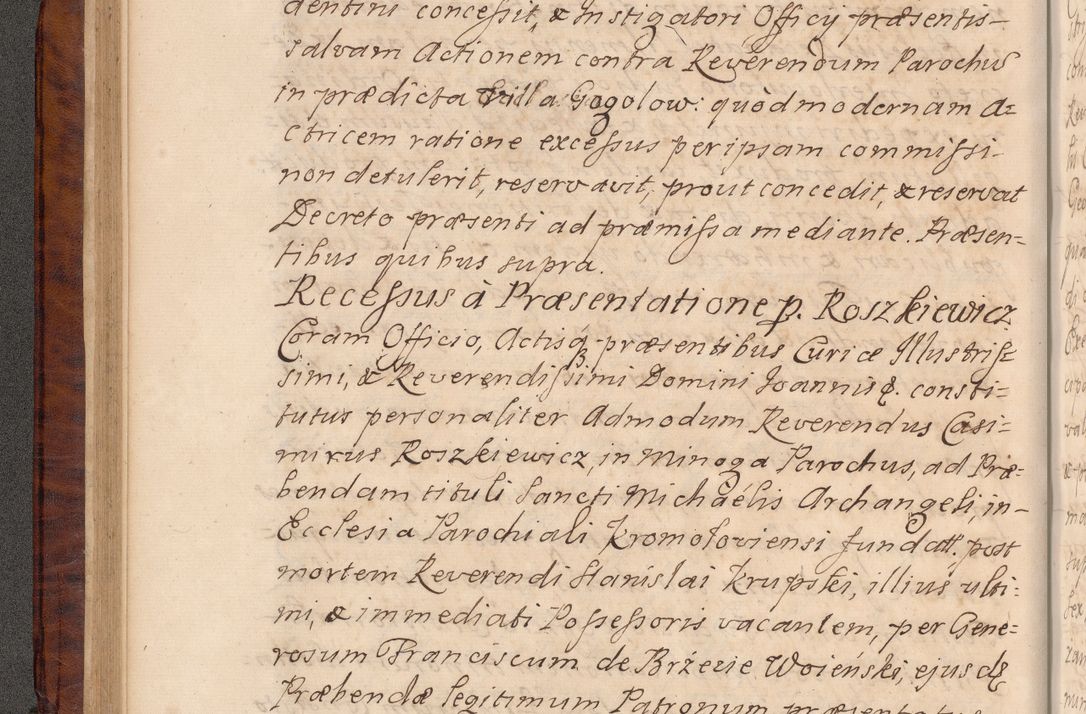 dentini concessit, & Instigatori Officij præsentis
salvam Actionem contra Reverendum Parochũ
in prædicta Villa Gogolow: quòd modernam A=
ctricem ratione excessus per ipsam commissi
non detulerit, reservavit, prout concedit, & reservat
Decreto præsenti ad præmissa mediante. Præsen=
tibus quibus supra.
Recessus à Præsentatione p. Roszkiewicz
Coram Officio, Actisq, præsentibus Curiæ Illustris=
simi, & Reverendissimi Domini Joannis &. consti=
tutus personaliter Admodum Reverendus Casi=
mirus Roszkiewicz, in Minoga Parochus, ad Præ=
bendam tituli Sancti Michaélis Archangeli, in
Ecclesia Parochiali Kromoloviensi fundatt. post
mortem Reverendi Stanislai Krupski, illius ulti=
mi, & immediati Possessoris vacantem, per Gene=
rosum Franciscum de Brzezie Woienski, ejusdę
Præbendæ legitimum Patronum